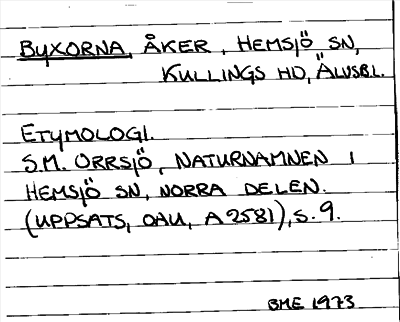 BYXORNA, ÅKER, HEMSJÖ SN,
KULLINGS HD, ÄLVSBL.
ETYMOLOGI.
S.M. ORRSJÖ, NATURNAMNEN I
HEMSJÖ SN, NORRA DELEN.
(UPPSATS, OAU, A 2581), S. 9.
BME 1973